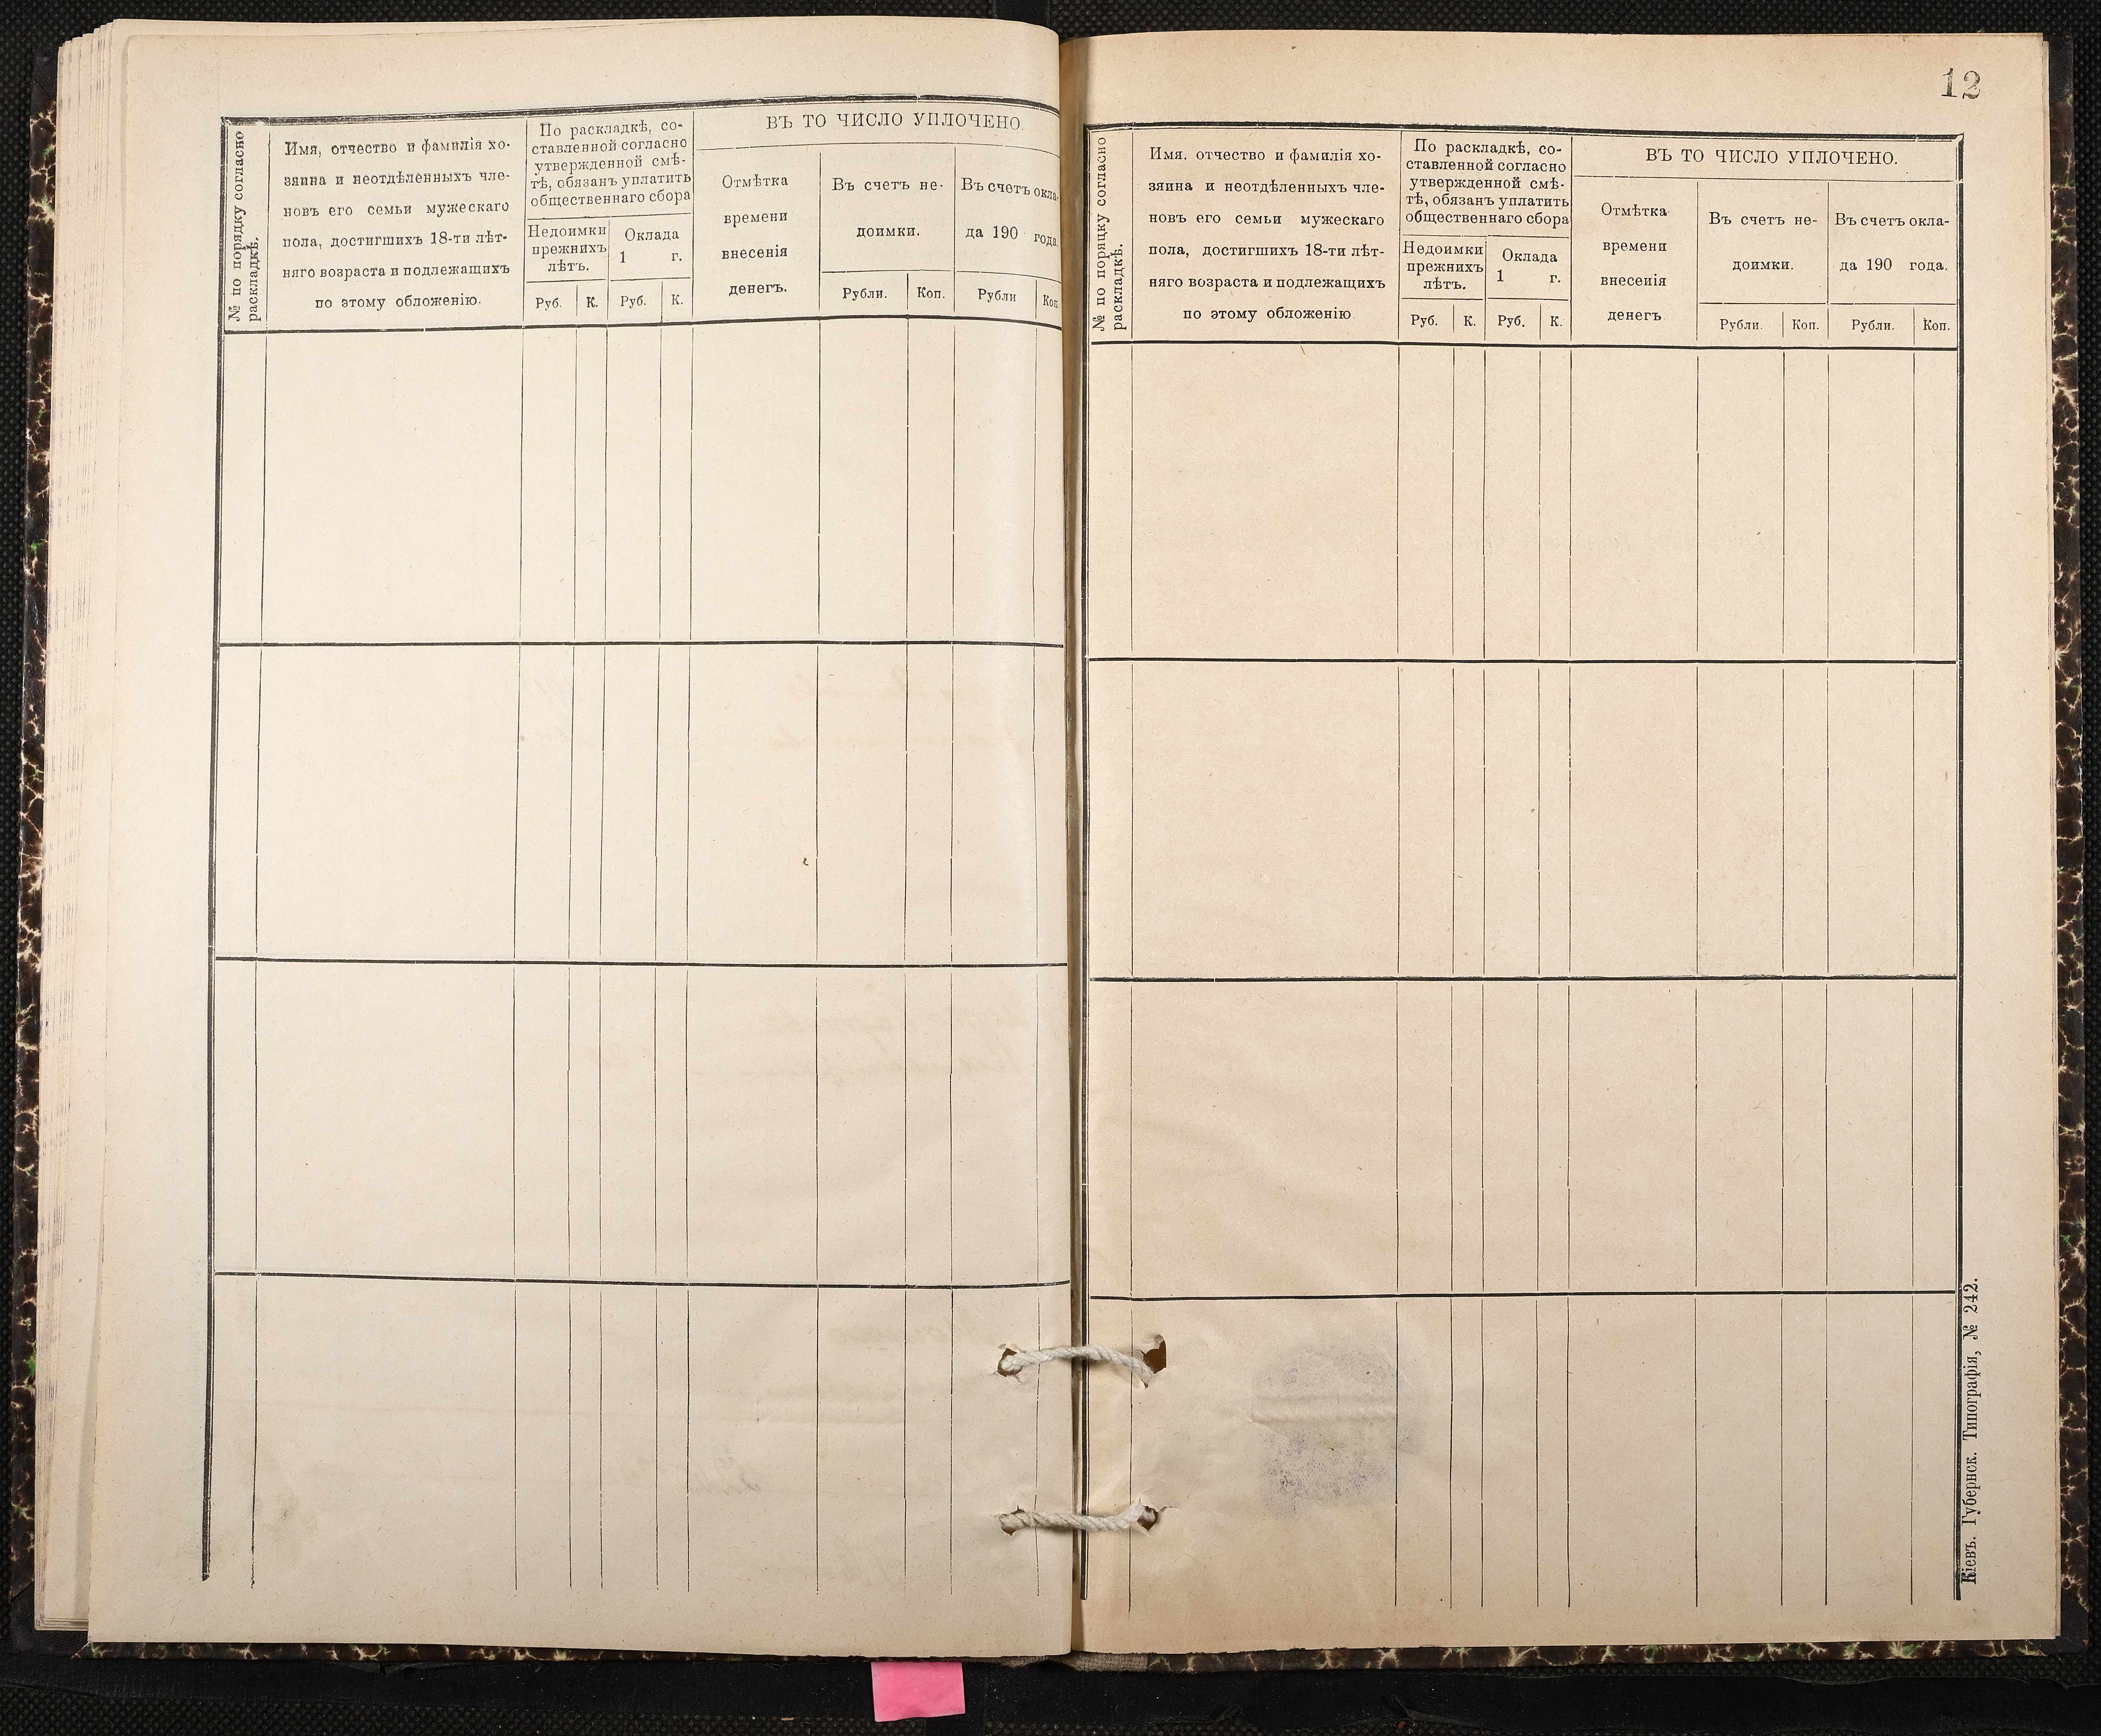 № по порядку согласно
раскладкѣ.
Имя, отчество и фамилія хо-
зяина и неотдѣленныхъ чле-
новъ его семьи мужескаго
пола, достигшихъ 18-ти лѣт-
няго возраста и подлежащихъ
по этому обложенію.
По раскладкѣ, со-
ставленной согласно
утвержденной смѣ-
тѣ, обязанъ уплатить
общественнаго сбора
Недоимки
прежнихъ
лѣтъ.
Оклада
1 г.
Руб. К. Руб. К.
ВЪ ТО ЧИСЛО УПЛОЧЕНО.
Отмѣтка
времени
внесенія
денегъ.
Въ счетъ не-
доимки.
Въ счетъ окла-
да 190 года.
Рубли. Коп. Рубли Коп
12
№ по порядку согласно
раскладкѣ.
Имя. отчество и фамилія хо-
зяина и неотдѣленныхъ чле-
новъ его семьи мужескаго
пола, достигшихъ 18-ти лѣт-
няго возраста и подлежащихъ
по этому обложенію
По раскладкѣ, со-
ставленной согласно
утвержденной смѣ-
тѣ, обязанъ уплатить
общественнаго сбора
Недоимки
прежнихъ
лѣтъ.
Оклада
1 г.
Руб. К. Руб. К.
ВЪ ТО ЧИСЛО УПЛОЧЕНО.
Отмѣтка
времени
внесенія
денегъ
Въ счетъ не-
доимки.
Въ счетъ окла-
да 190 года.
Рубли. Коп. Рубли. Коп.
Кіевъ. Губернск. Типографія, № 242.